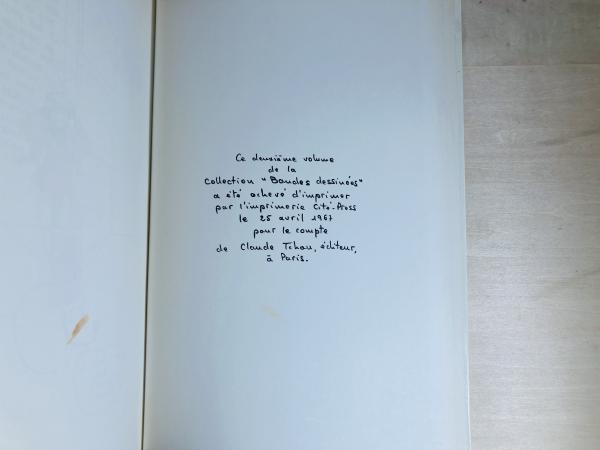 Ce deuxième volume
de la
collection "Bandes dessinées"
a été achevé d'imprimer
par l'imprimerie Cité-Press
le 25 avril 1967
pour le compte
de Claude Tchou, éditeur,
à Paris.